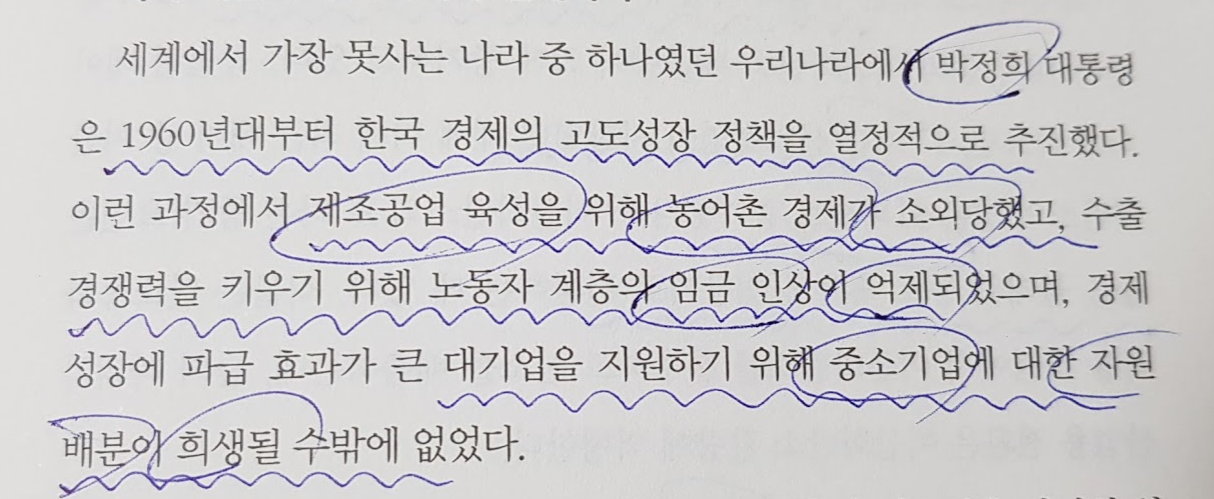 세계에서 가장 못사는 나라 중 하나였던 우리나라에서 박정희 대통령
은 1960년대부터 한국 경제의 고도성장 정책을 열정적으로 추진했다.
이런 과정에서 제조공업 육성을 위해 농어촌 경제가 소외당했고, 수출
경쟁력을 키우기 위해 노동자 계층의 임금 인상이 억제되었으며, 경제
성장에 파급 효과가 큰 대기업을 지원하기 위해 중소기업에 대한 자원
배분이 희생될 수밖에 없었다.